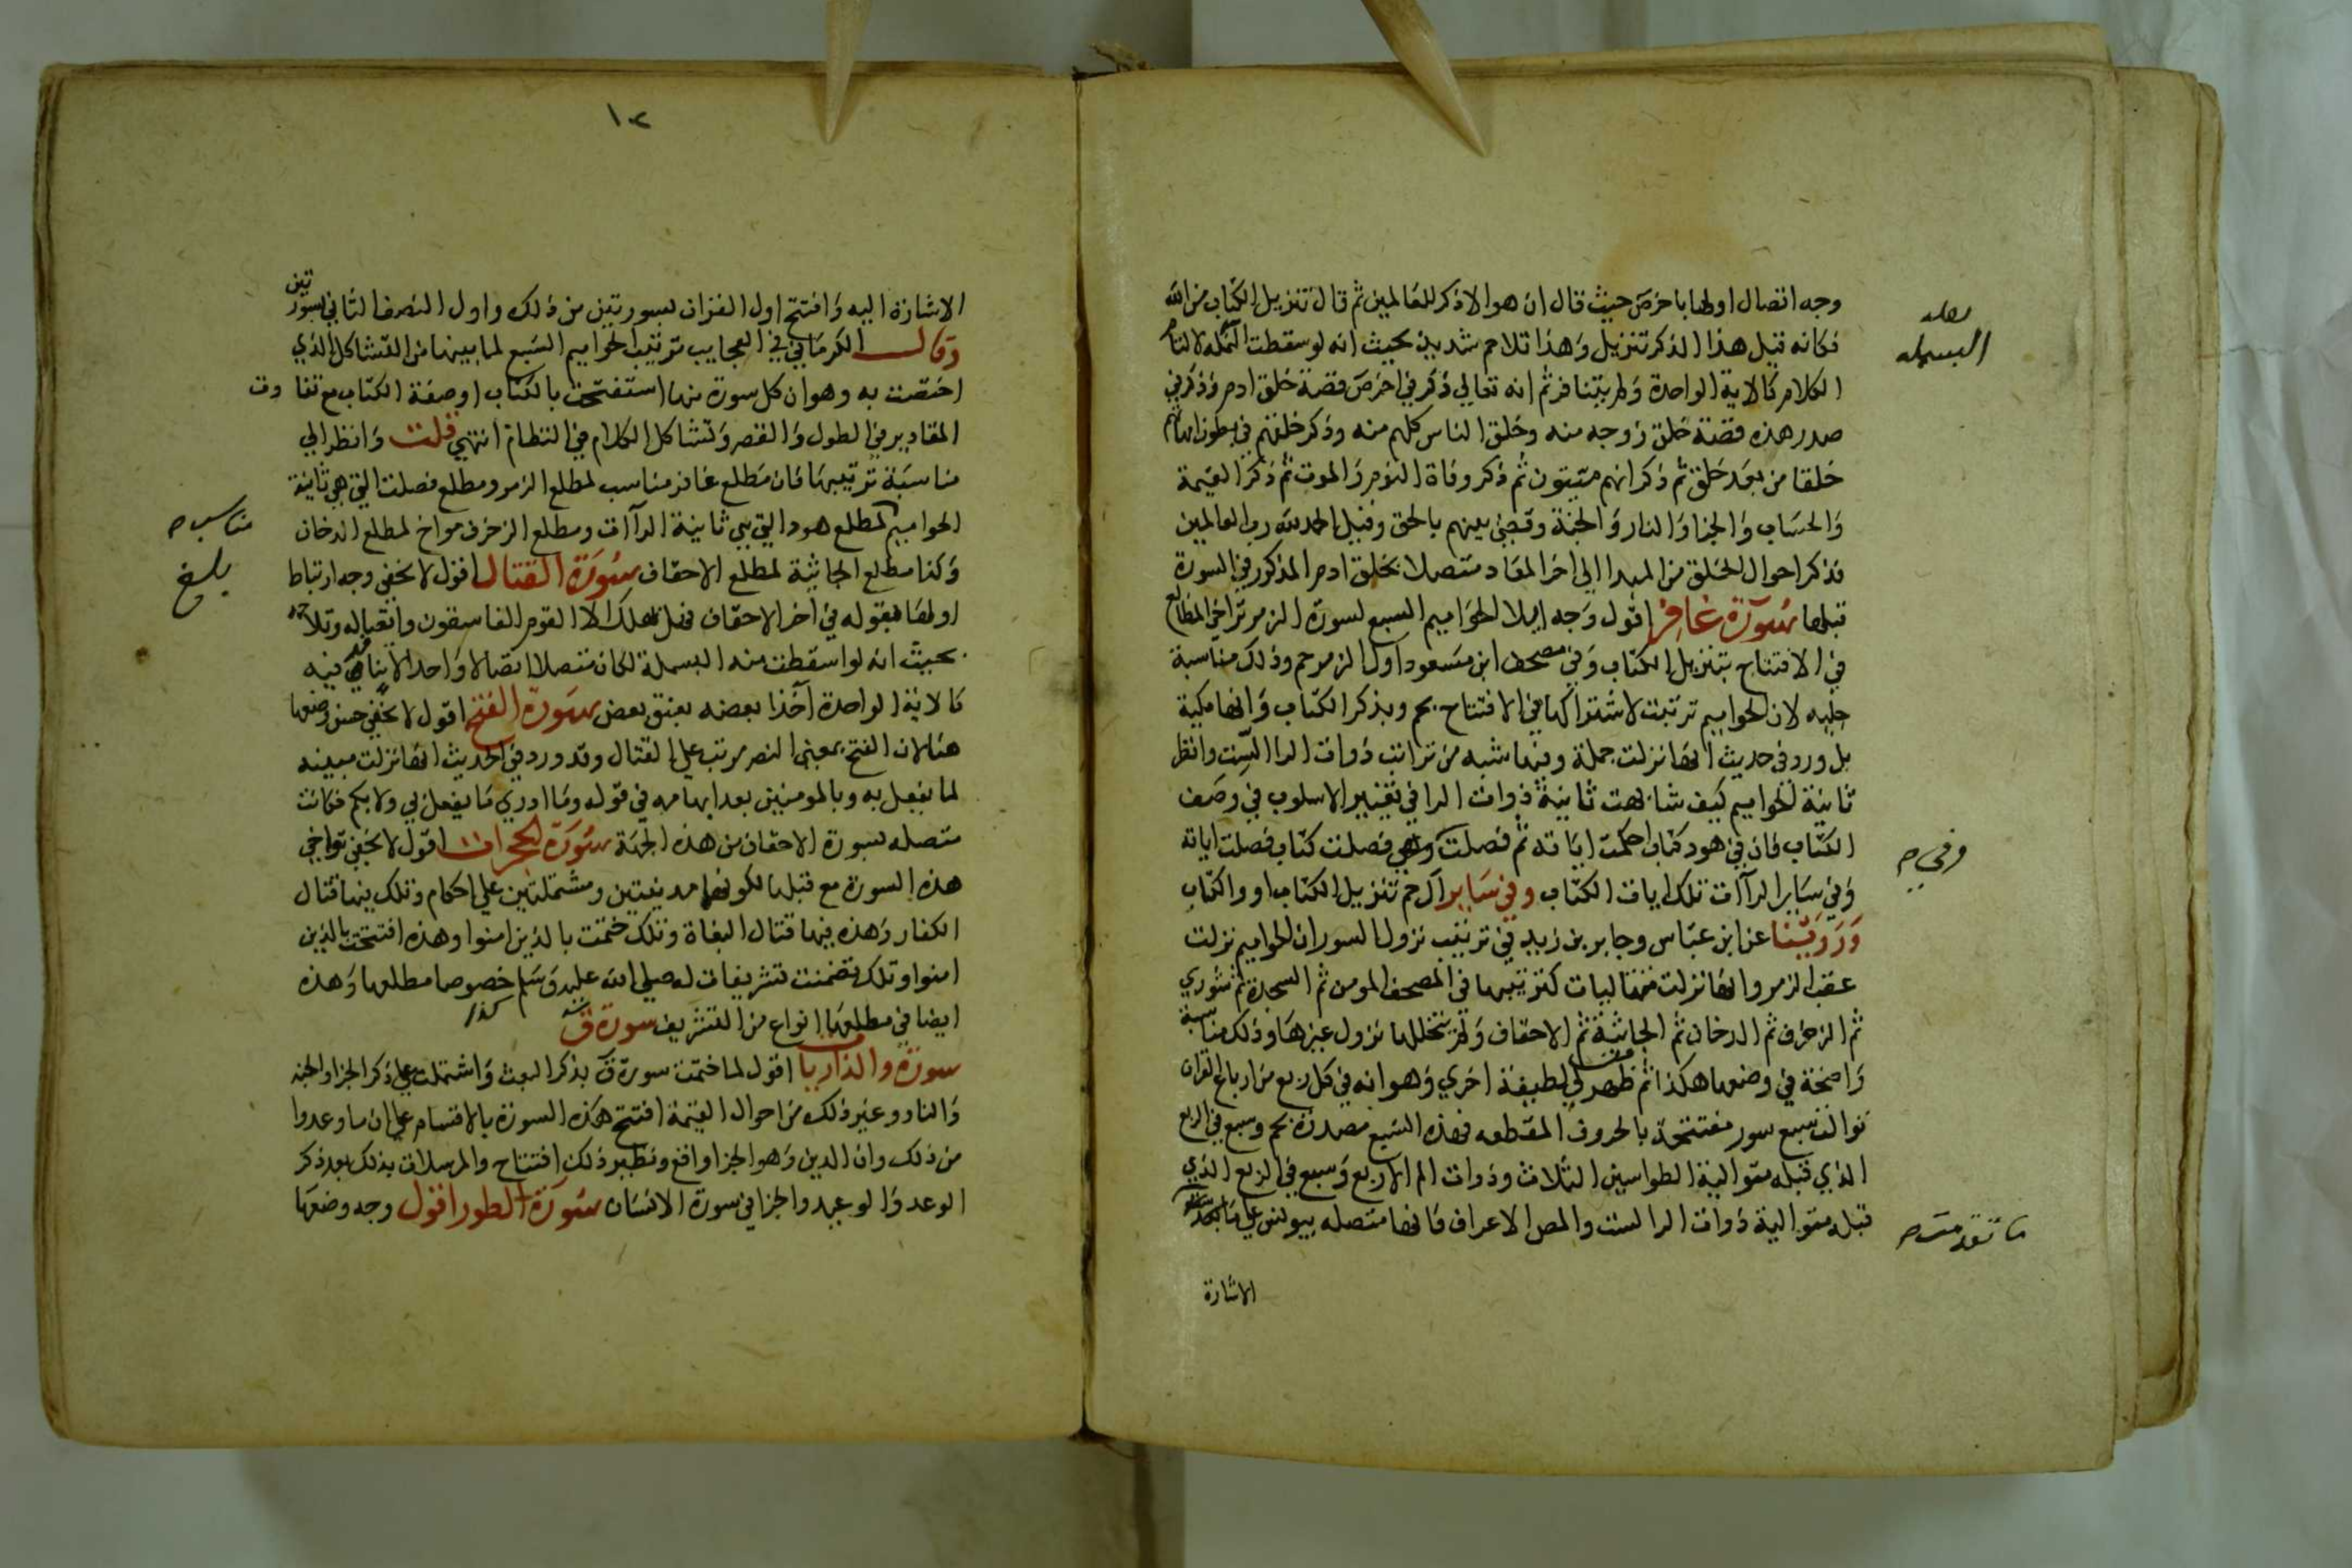 وجه اتصال اولها باخر ص حيث قال ان هو الا ذكر للعالمين ثم قال تنزيل الكتاب من الله
فكانه قيل هذا الذكر تنزيل وهذا تلاحم شديد بحيث انه لو سقطت البسملة لالتام
الكلام كالاية الواحدة ثم انه تعالي ذكر في اخر ص قصة خلق ادم وذكر في
صدر هذه قصة خلق زوجه منه وخلق الناس كلهم منه وذكر خلقهم في بطون امهاتهم
خلقا من بعد خلق ثم ذكر انهم ميتون ثم ذكر وفاة النوم والموت ثم ذكر القيمة
والحساب والجزا والنار والجنة وقضي بينهم بالحق وقيل الحمد لله رب العالمين
فذكر احوال الخلق من المبدا الي اخر المعاد متصلا بخلق ادم المذكور في السورة
قبلها سورة غافر اقول وجه ايلا الحواميم السبع لسورة الزمر تواخي المطالع
في الافتتاح بتنزيل الكتاب وفي مصحف ابن مسعود اول الزمر حم وذلك مناسبة
جليه لان الحواميم ترتبت لاشتراكها في الافتتاح بحم وبذكر الكتاب وانها مكية
بل ورد في حديث انها نزلت جملة وفيها شبه من ترتيب ذوات الرا الست وانظر
ثانية الحواميم كيف شابهت ثانية ذوات الرا في تغيير الاسلوب في وصف
الكتاب فان في هود كتاب احكمت اياته ثم فصلت وفي فصلت كتاب فصلت اياته
وفي ساير الراات تلك ايات الكتاب وفي ساير ال حم تنزيل الكتاب او والكتاب
وروينا عن ابن عباس وجابر بن زيد في ترتيب نزول السور ان الحواميم نزلت
عقب الزمر وانها نزلت متتاليات كترتيبها في المصحف المومن ثم السجدة ثم شوري
ثم الزخرف ثم الدخان ثم الجاثية ثم الاحقاف ولم يتخللها نزول غيرها وذلك مناسبة
واضحة في وضعها هكذا ثم ظهر لي لطيفة اخري وهو انه في كل ربع من ارباع القران
توالت سبع سور مفتتحة بالحروف المقطعه فهذه السبع مصدرة بحم وسبع في الربع
الذي قبله متوالية الطواسين الثلاث وذوات الم الاربع وسبع في الربع الذي
قبله متوالية ذوات الرا الست والمص الاعراف فانها متصله بيونس علي
الاشارة
البسمله
وفي ح
ما تقدمت ح
١٢
الاشارة اليه وافتتح اول القران بسورتين من ذلك واول النصف الثاني بسورتين
وقال الكرماني في العجايب ترتيب الحواميم السبع لما بينها من التشاكل الذي
اختصت به وهو ان كل سورة منها استفتحت بالكتاب او صفة الكتاب مع تفاوت
المقادير في الطول والقصر وتشاكل الكلام في النظام انتهي قلت وانظر الي
مناسبة ترتيبها فان مطلع غافر مناسب لمطلع الزمر ومطلع فصلت التي هي ثانية
الحواميم لمطلع هود التي هي ثانية الراات ومطلع الزخرف مواخ لمطلع الدخان
وكذا مطلع الجاثية لمطلع الاحقاف سورة القتال اقول لا يخفي وجه ارتباط
اولها بقوله في اخر الاحقاف فهل يهلك الا القوم الفاسقون واتصاله وتلاحمه
بحيث انه لو اسقطت منه البسملة لكان متصلا اتصالا واحدا لا فيه
كالاية الواحدة اخذا بعضه بعنق بعض سورة الفتح اقول لا يخفي حسن وضعها
هنا لان الفتح بمعني النصر مرتب علي القتال وقد ورد في الحديث انها نزلت مبينه
لما يفعل به وبالمومنين بعد ابهامه في قوله وما ادري ما يفعل بي ولا بكم فكانت
متصله بسورة الاحقاف من هذه الجهة سورة الحجرات اقول لا يخفي تواخي
هذه السورة مع قبلها لكونهما مدنيتين ومشتملتين علي احكام وتلك فيها قتال
الكفار وهذه فيها قتال البغاة وتلك ختمت بالذين امنوا وهذه افتتحت بالذين
امنوا وتلك تضمنت تشريفات له صلي الله عليه وسلم خصوصا مطلعها وهذه
ايضا في مطلعها انواع من التشريف سورة ق
سورة والذاريا اقول لما ختمت سورة ق بذكر البعث واشتملت علي ذكر الجزا والجنه
والنار وغير ذلك من احوال القيمة افتتح هذه السورة بالاقسام علي ان ما وعدوا
من ذلك وان الدين وهو الجزا واقع ونظير ذلك افتتاح والمرسلات بذلك بعد ذكر
الوعد والوعيد والجزا في سورة الانسان سورة الطور اقول وجه وضعها
مناسب ح
بلغ